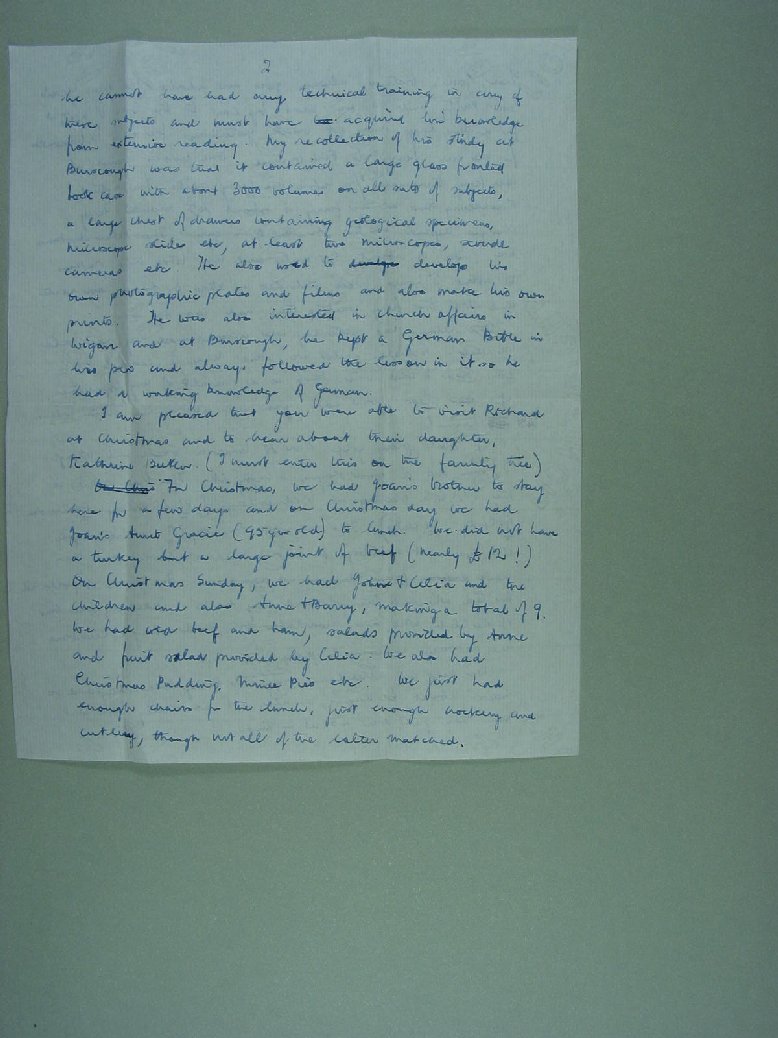 2
he cannot have had any technical training in any of
these subjects and must have acquired his knowledge
from extensive reading. My recollection of his study at
Burscough was that it contained a large glass fronted
book case with about 3000 volumes on all sorts of subjects,
a large chest of drawers containing geological specimens,
microscope slides etc, at least two microscopes,
cameras etc He also used to develop his
own photographic plates and films and also make his own
prints. He was also interested in church affairs in
Wigan and at Burscough, he kept a German Bible in
his pew and always followed the lesson in it so he
had a working knowledge of German.
I am pleased that you were able to visit Richard
at Christmas and to hear about their daughter,
Katherine. (I must enter this on the family tree)
For Christmas, we had Joan's brother to stay
here for a few days and on Christmas day we had
Joan's Aunt Gracie (95 years old) to lunch. We did not have
a turkey but a large joint of beef (nearly £12!)
On Christmas Sunday, we had John + Celia and the
children and also Anne + Barry, making a total of 9.
We had cold beef and ham, salads provided by Anne
and fruit salad provided by Celia. We also had
Christmas Pudding, Mince Pies etc. We just had
enough chairs for the lunch, just enough crockery and
cutlery, though not all of the latter matched.